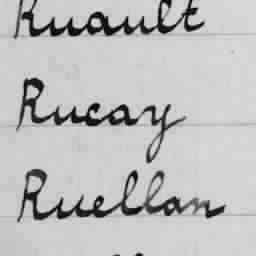 Ruault
Rucay
Ruellan